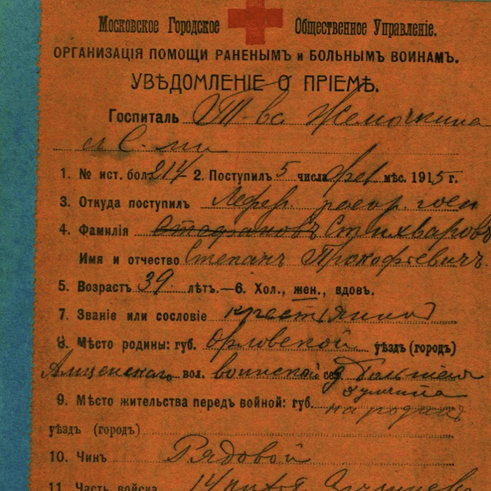 Московское Городское Общественное Управленіе.
ОРГАНИЗАЦІЯ ПОМОЩИ РАНЕНЫМЪ и БОЛЬНЫМЪ ВОИНАМЪ.
УВѢДОМЛЕНІЕ О ПРІЕМѢ.
Госпиталь Т-ва Жемочкина
и С-ми
1. № ист. бол. 214 2. Поступилъ 5 числа фев. мѣс. 1915 г.
3. Откуда поступилъ Лефор.
4. Фамилія Стефановъ Стихваровъ
Имя и отчество Степанъ Прокофьевичъ.
5. Возрастъ 39 лѣтъ.—6. Хол., жен., вдовъ.
7. Званіе или сословіе крестьянинъ
8. Мѣсто родины: губ. Орловской уѣздъ (городъ)
вол. Воинской
9. Мѣсто жительства передъ войной: губ. на родинѣ
уѣздъ (городъ)
10. Чинъ Рядовой
11. Часть войска